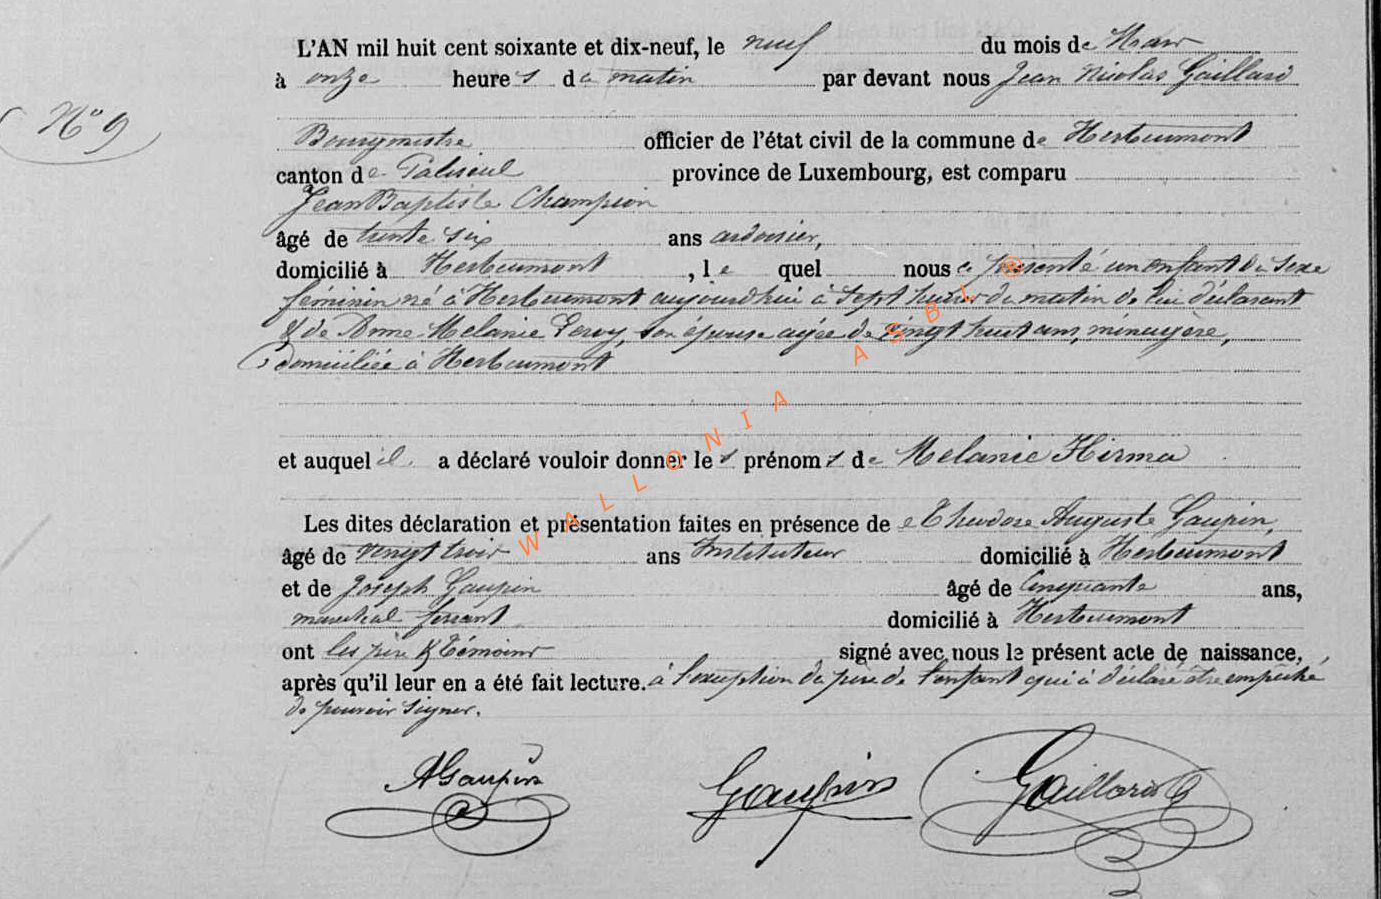 L'AN mil huit cent soixante et dix-neuf, le neuf du mois de Mars
à onze heures du matin par devant nous Jean Nicolas Gaillard
N° 9
Bourgmestre officier de l'état civil de la commune de Herbeumont
canton de Paliseul province de Luxembourg, est comparu
Jean Baptiste Champion
âgé de trente six ans ardoisier,
domicilié à Herbeumont, le quel nous a présenté un enfant du sexe
féminin né à Herbeumont aujourdhui à sept heures du matin de lui déclarant
& de Anne Melanie Leroy, son épouse agée de vingt huit ans, ménagère,
domiciliée à Herbeumont
et auquel il a déclaré vouloir donner les prénoms de Melanie Hirma
Les dites déclaration et présentation faites en présence de Theodore Auguste Gaupin,
âgé de vingt trois ans Instituteur domicilié à Herbeumont
et de Joseph Gaupin âgé de Cinquante ans,
maréchal ferrant domicilié à Herbeumont
ont les père & Témoins signé avec nous le présent acte de naissance,
après qu'il leur en a été fait lecture. à l'exception du père de l'enfant qui a déclaré être empêché
de pouvoir signer.
AGaupin Gaupin Gaillard
WALLONIA ASBL @